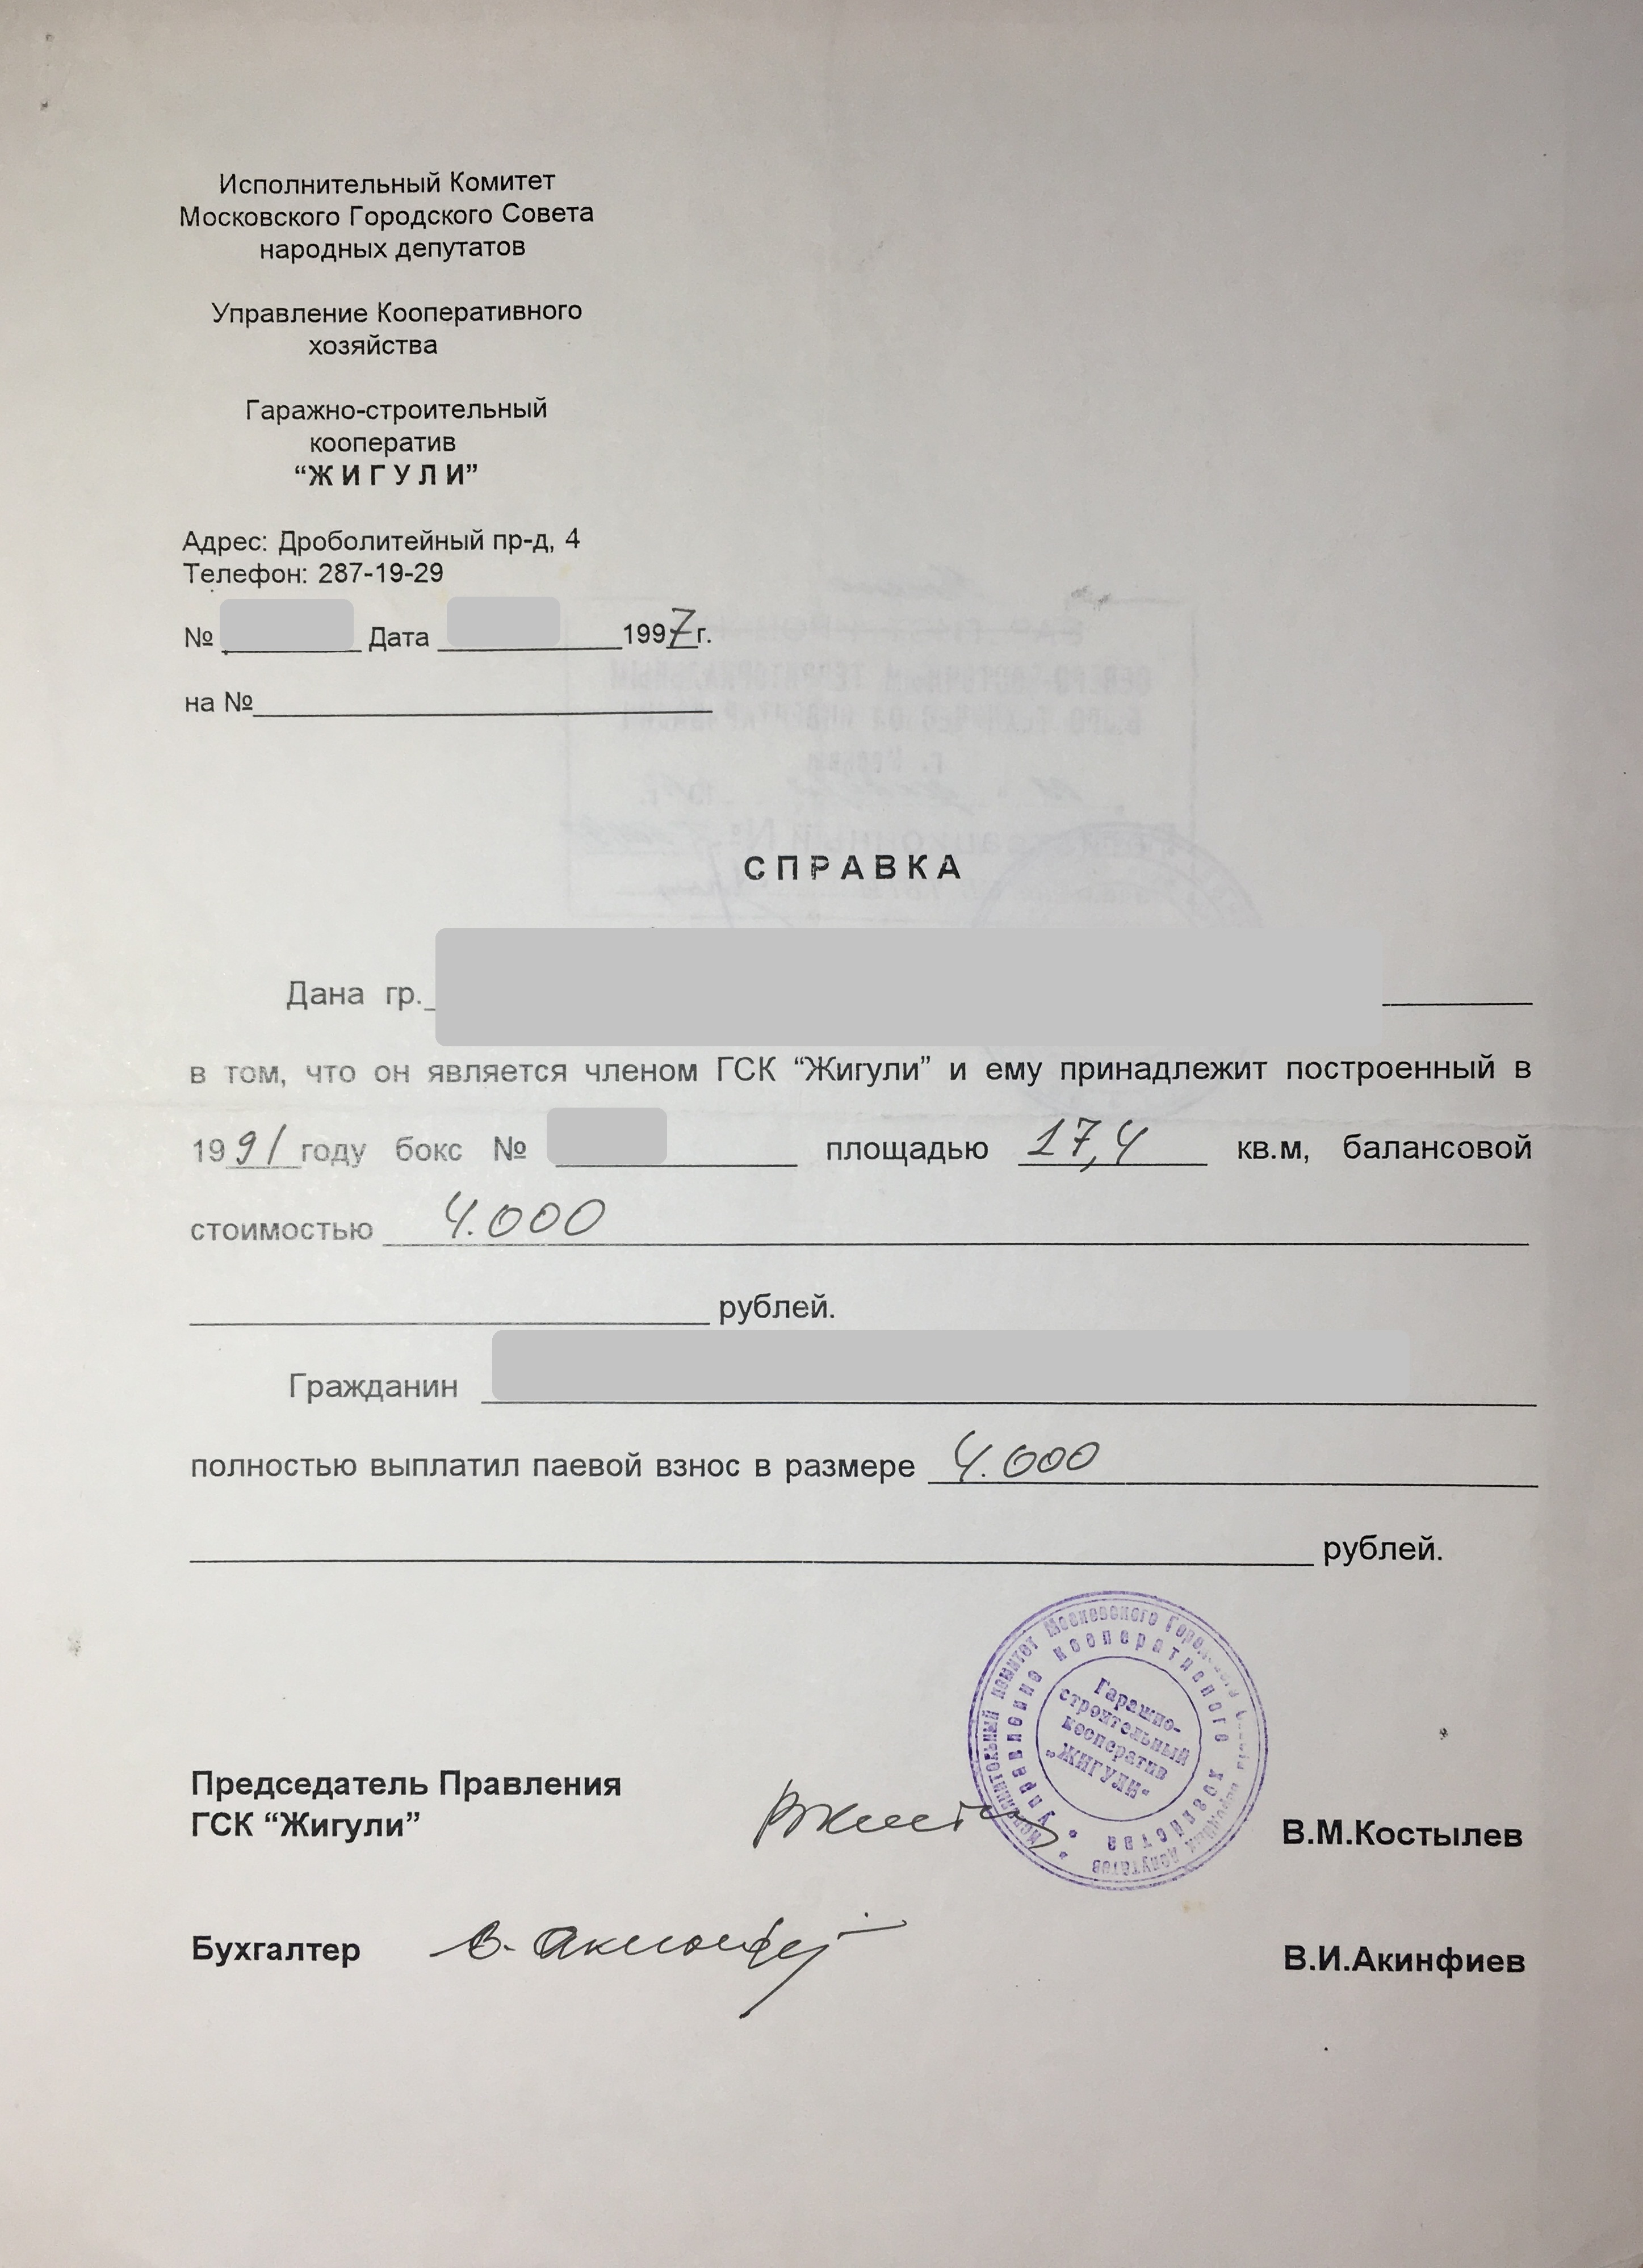 Исполнительный Комитет
Московского Городского Совета
народных депутатов
Управление Кооперативного
хозяйства
Гаражно-строительный
кооператив
“ЖИГУЛИ”
Адрес: Дроболитейный пр-д, 4
Телефон: 287-19-29
№ Дата 1997г.
на №
СПРАВКА
Дана гр.
в том, что он является членом ГСК “Жигули” и ему принадлежит построенный в
1991 году бокс № площадью 17,4 кв.м, балансовой
стоимостью 4.000
рублей.
Гражданин
полностью выплатил паевой взнос в размере 4.000
рублей.
Исполнительный комитет Московского Городского Совета народных депутатов
Управление кооперативного хозяйства
Гаражно-
строительный
кооператив
„ЖИГУЛИ“
Председатель Правления
ГСК “Жигули”
В.М.Костылев
Бухгалтер В. Акинфиев В.И.Акинфиев